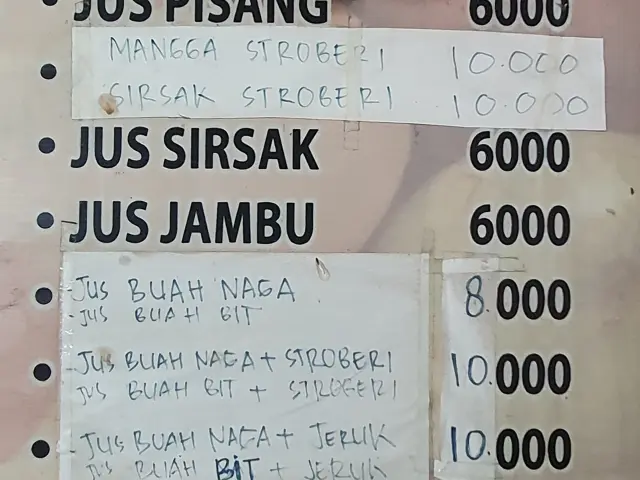 • JUS PISANG 6000
• MANGGA STROBERI 10.000
SIRSAK STROBERI 10.000
• JUS SIRSAK 6000
• JUS JAMBU 6000
• JUS BUAH NAGA 8.000
JUS BUAH BIT
• JUS BUAH NAGA + STROBERI 10.000
JUS BUAH BIT + STROBERI
• JUS BUAH NAGA + JERUK 10.000
JUS BUAH BIT + JERUK